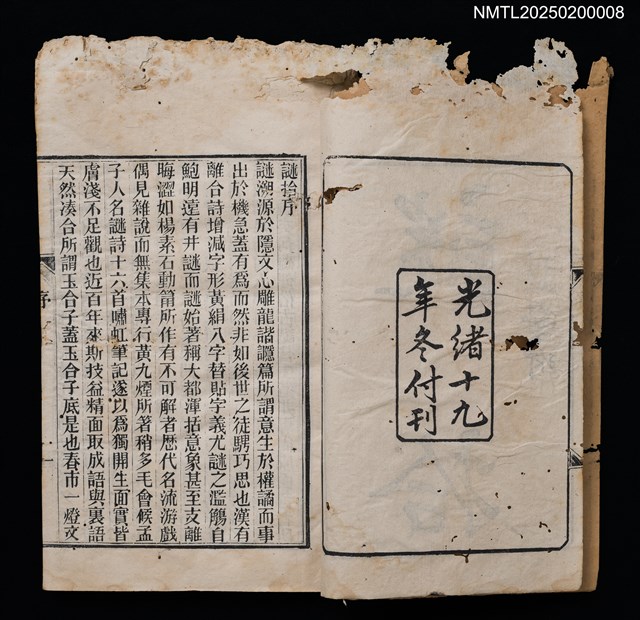 NMTL20250200008
光緒十九
年冬付刊
謎拾序
謎溯源於隱文心雕龍諧讔篇所謂意生於權譎而事
出於機急蓋有為而然非如後世之徒騁巧思也漢有
離合詩增減字形黃絹八字替貼字義尤謎之濫觴自
鮑明遠有井謎而謎始著稱大都渾括意象甚至支離
晦澀如楊素石動筩所作有不可解者歷代名流游戲
偶見雜說而無集本專行黃九煙所著稍多毛會候孟
子人名謎詩十六首嘯虹筆記遂以爲獨開生面實皆
膚淺不足觀也近百年來斯技益精面取成語與裏語
天然湊合所謂玉合子蓋玉合子底是也春市一燈文
序